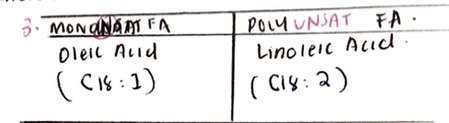 3. MONOUNSAT FA
POLY UNSAT FA.
Oleic Acid
Linoleic Acid.
(C18:1)
(C18:2)